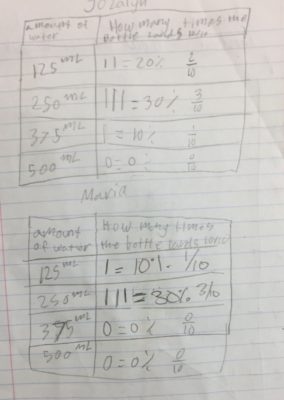 Jozalyn
amount of water How many times the bottle lands
125 mL || = 20% 2/10
250 mL ||| = 30% 3/10
375 mL | = 10% 1/10
500 mL 0 = 0% 0/10
Maria
amount of water How many times the bottle lands
125 mL | = 10% 1/10
250 mL ||| = 30% 3/10
375 mL 0 = 0% 0/10
500 mL 0 = 0% 0/10